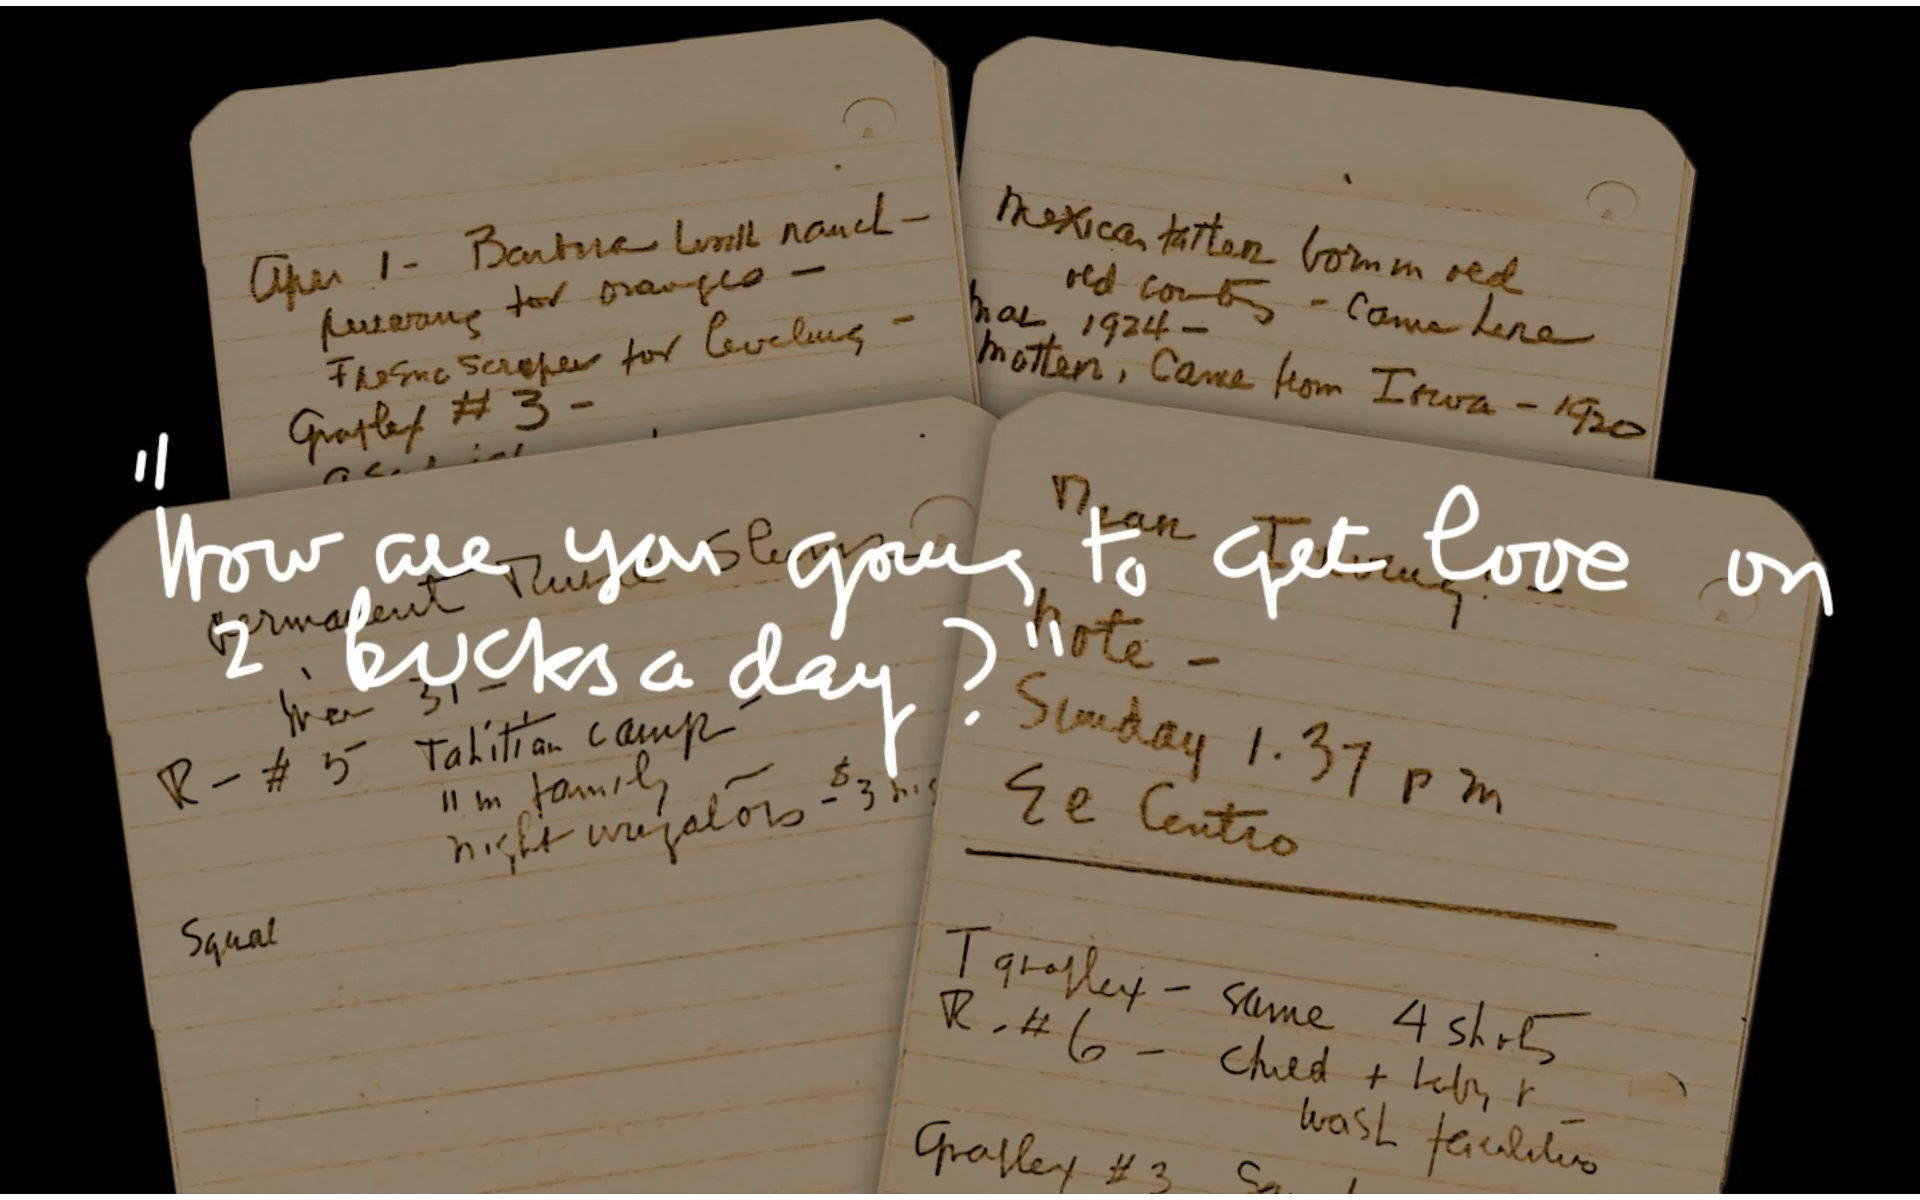 Aper 1 - Barbara ranch -
for oranges -
Fresno scraper for leveling -
Graflex # 3 -
Mexican father born in
old country - Came here
Mar 1924 -
Mother, Came from Iowa - 1920
"How are you going to get love on
2 bucks a day?"
permanent Rural Slums
Mar 31 -
R - # 5 Tahitian camp -
11 in family
night irrigators - $3
Squat
Dean
Note -
Sunday 1.37 pm
El Centro
T graflex - same 4 shots
R - # 6 - child + baby +
wash facilities
Graflex # 3